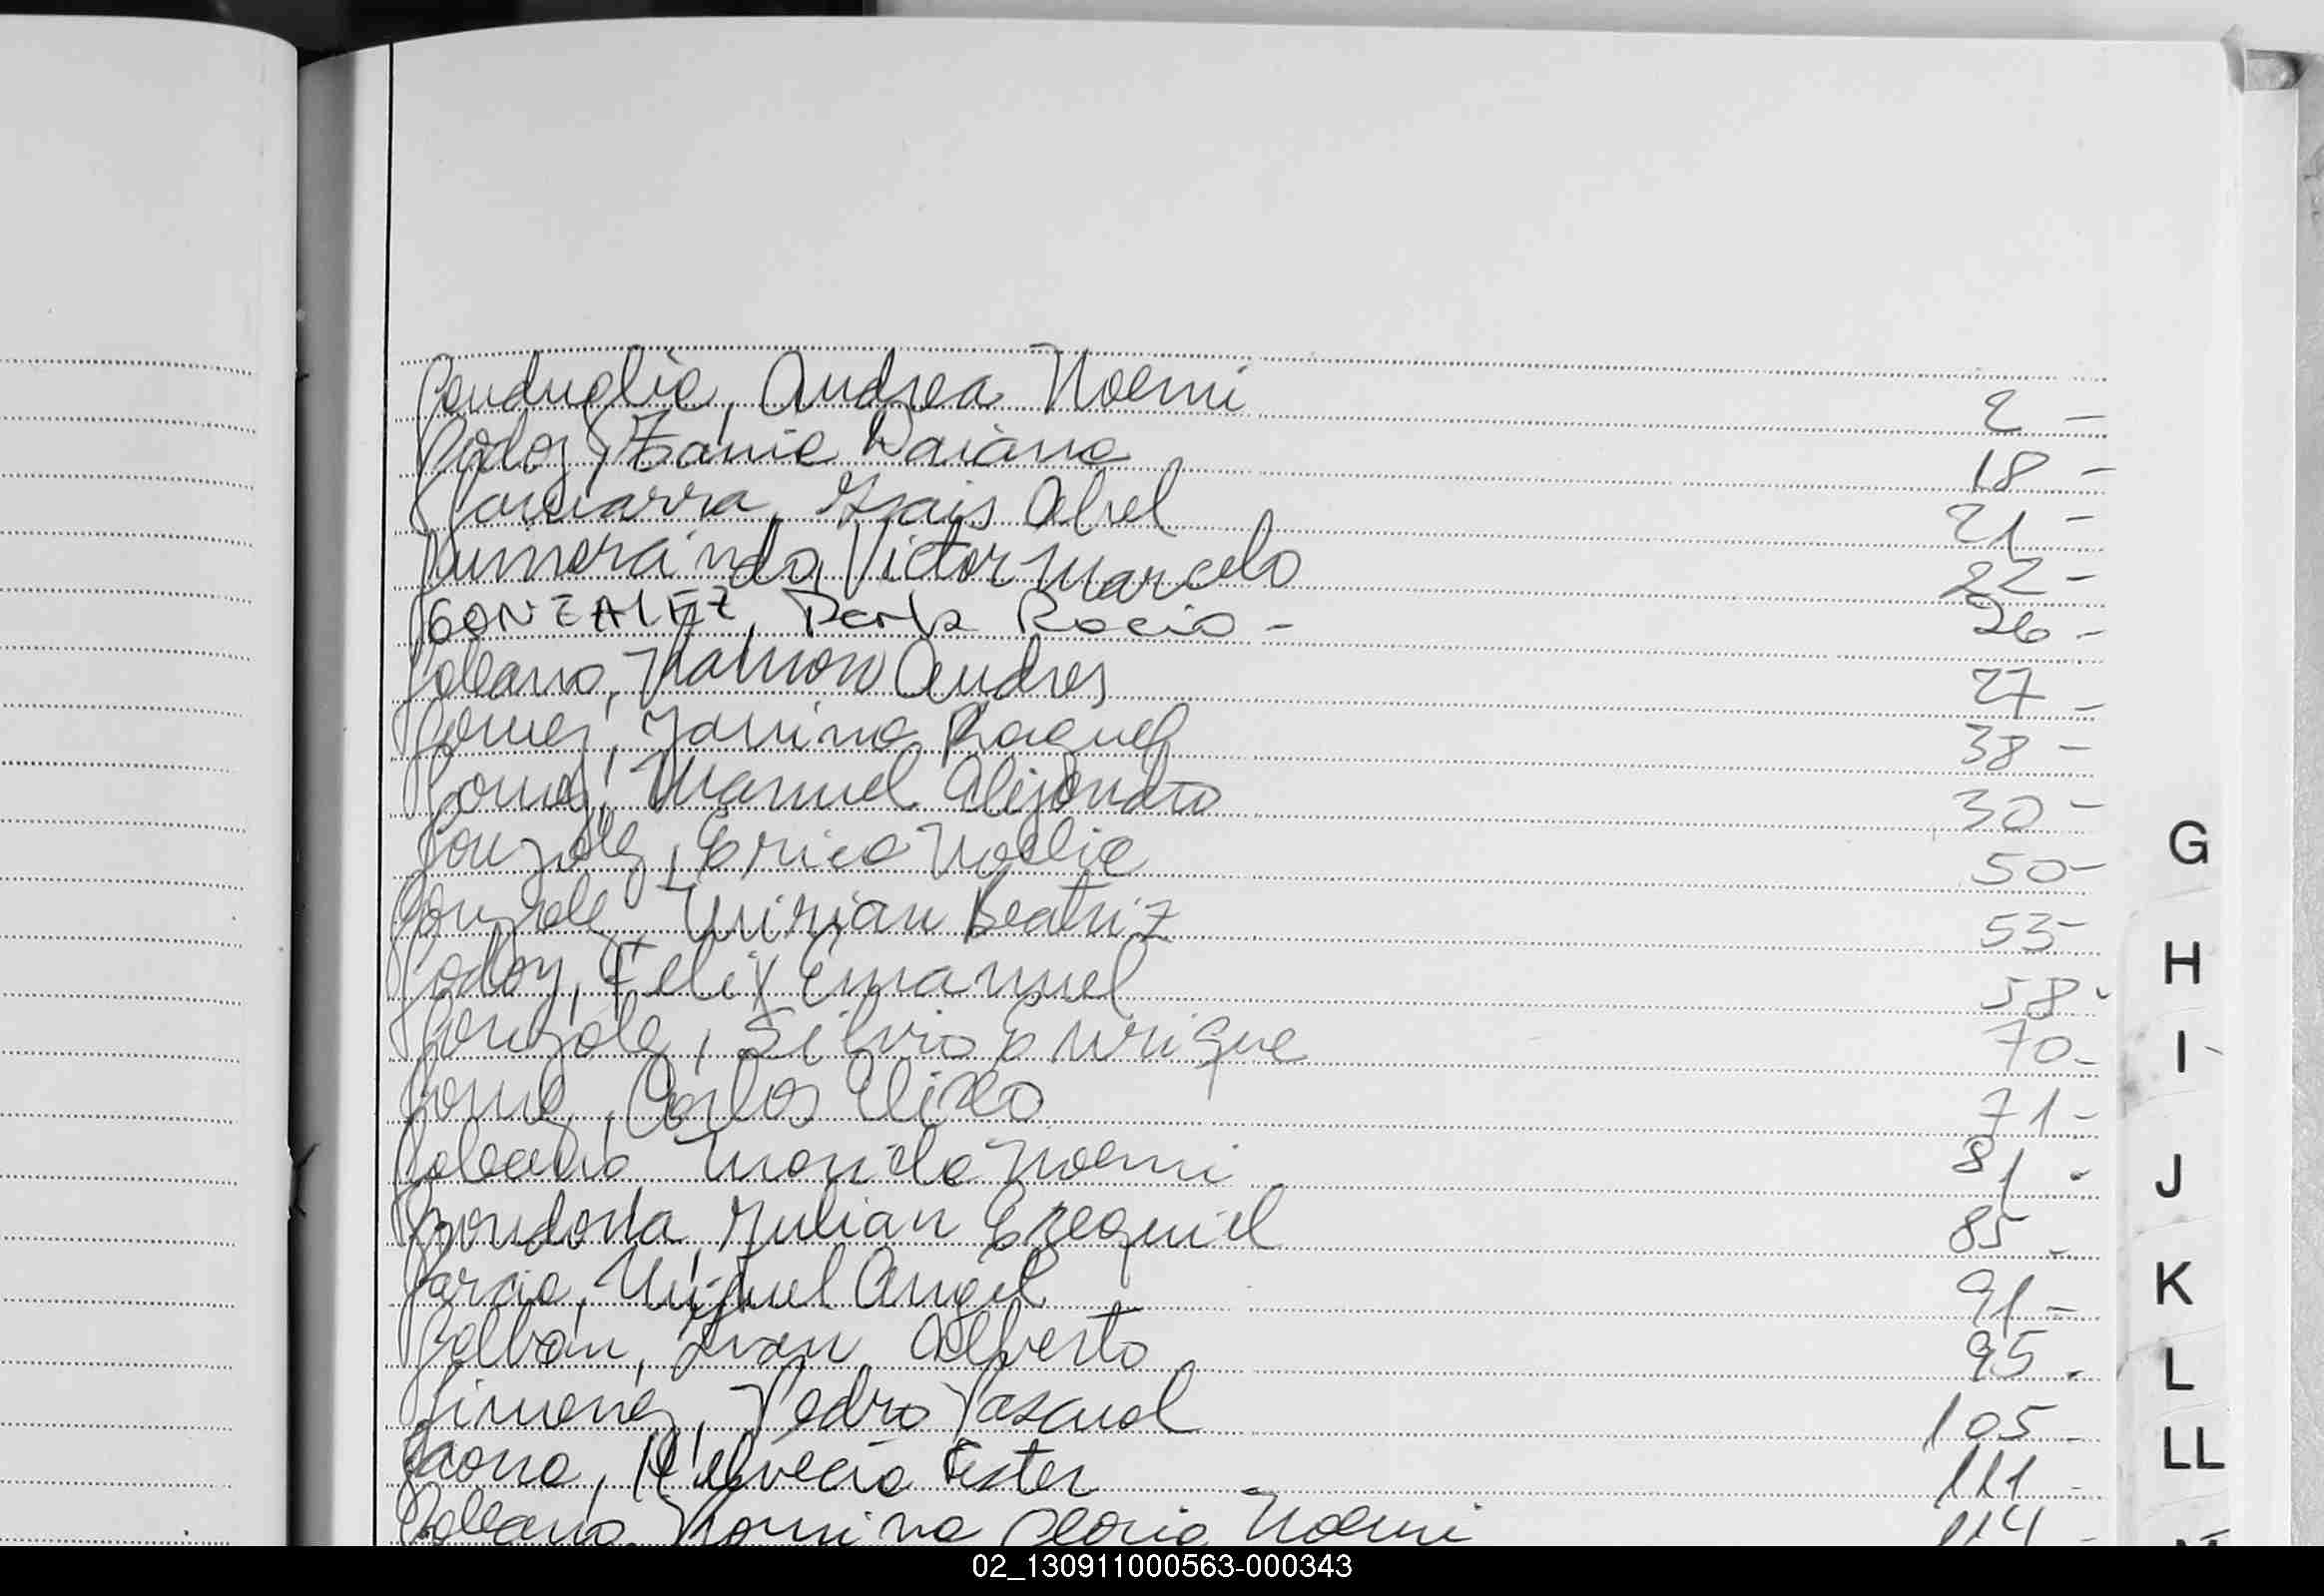 Ganduglia, Andrea Noemi 2 -
Godoy, Tania Daiana 18 -
Gamarra, Isais Abel 21 -
Gumeraindo, Victor Marcelo 22 -
GONZALEZ, Perla Rocio - 26 -
Galeano, Ramon Andres 27 -
Gomez, Yanina Raquel 38 -
Gomez, Manuel Alejandro 30 -
Gonzalez, Erica Noelia 50 -
Gonzalez, Mirian Beatriz 53 -
Godoy, Felix Emanuel 58 -
Gonzalez, Silvio Enrique 70 -
Gomez, Carlos 71 -
Galeano, Noemi 81 -
Julian Ezequiel 85 -
Garcia, Miguel Angel 91 -
Galban, Ivan Alberto 95 -
Gimenez, Pedro Pascual 105 -
Gaona, Helvecia Ester 111 -
Galeano, Romina Gloria Noemi 114 -
G
H
I
J
K
L
LL
02_130911000563-000343